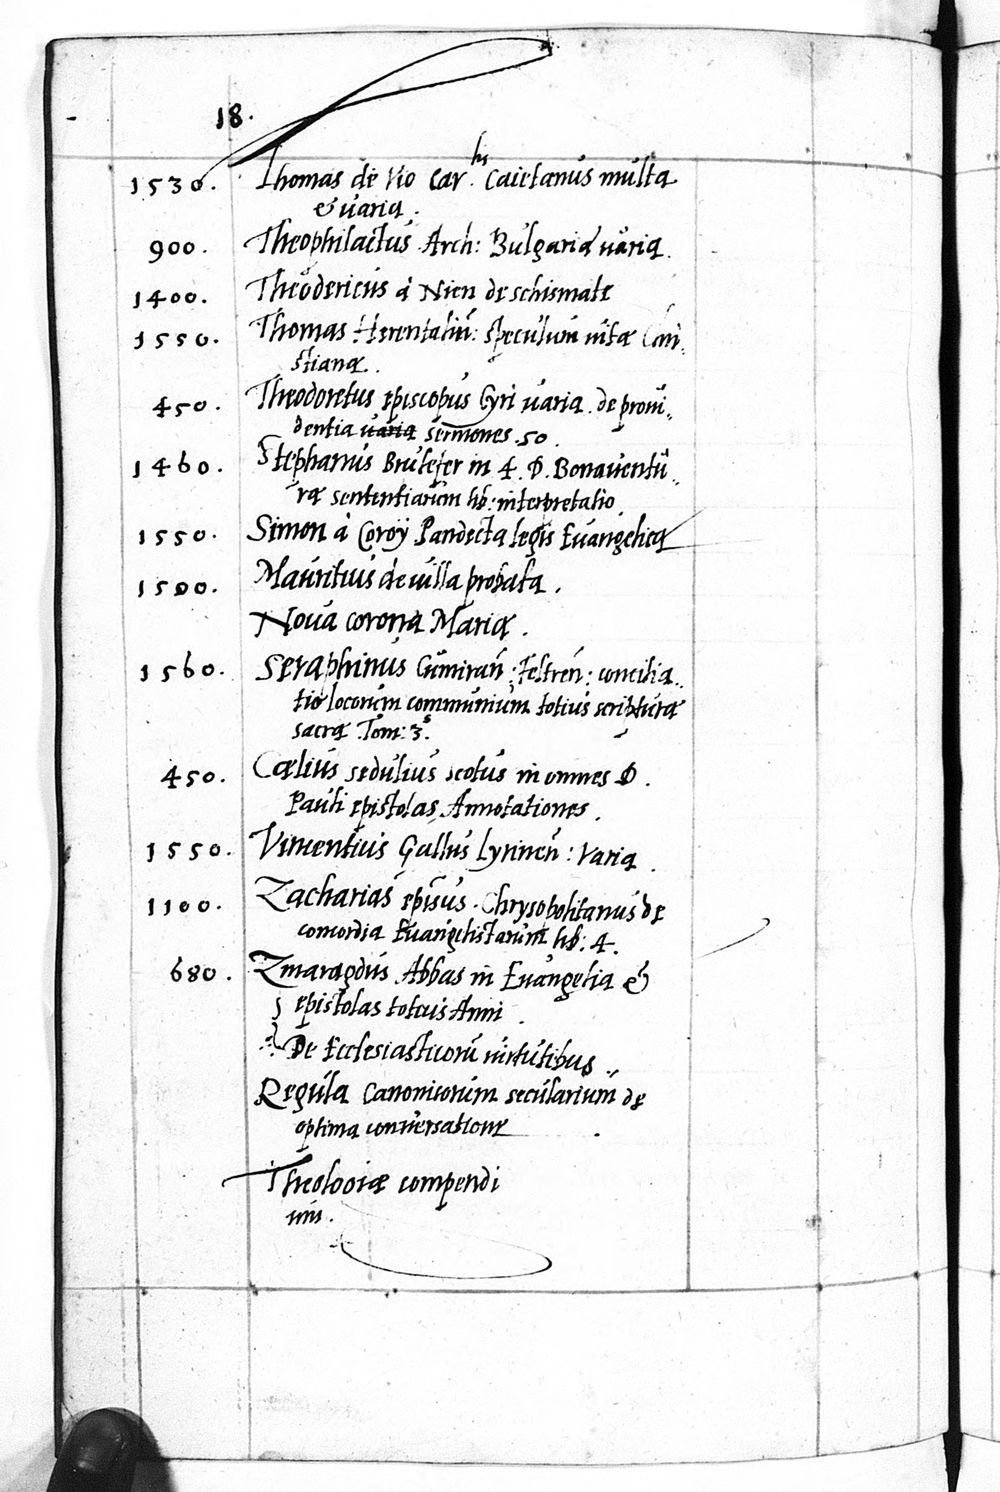 18.
1530. Thomas de Vio Car.lis Caietanus multa
& varia.
900. Theophilactus Arch: Bulgariæ varia.
1400. Theodericus à Nien de schismate
1550. Thomas Herentaliñ: speculum vitæ Chri,,
stianæ.
450. Theodoretus episcopus Cyri varia. de provi,,
dentia varia sermones .50.
1460. Stephanus Brulefer in 4. D. Bonaventu,,
ræ sententiarum lib: interpretatio.
1550. Simon à Coroÿ Pandecta legis Evangelicæ
1500. Mauritius de villa probata.
Nova corona Mariæ.
1560. Seraphinus Cumirañ: feltreñ: concilia,,
tio locorum communium totius scripturæ
sacræ Tom: 3.s
450. Cælius sedulius scotus in omnes D.
Pauli epistolas Annotationes.
1550. Vincentius Gallus Lyrineñ: varia.
1100. Zacharias epĩsus. Chrysopolitanus de
concordia Evangelistarum lib: 4.
680. Zmaragdus Abbas in Evangelia &
epistolas totius Anni.
De Ecclesiasticorũ virtutibus,,
Regula Canonicorum secularium de
optima conversatione.
Theologiæ compendi
um.